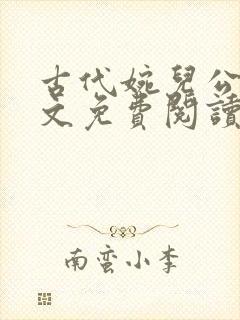 古代婉兒公
文免費閱讀
南蛮小李